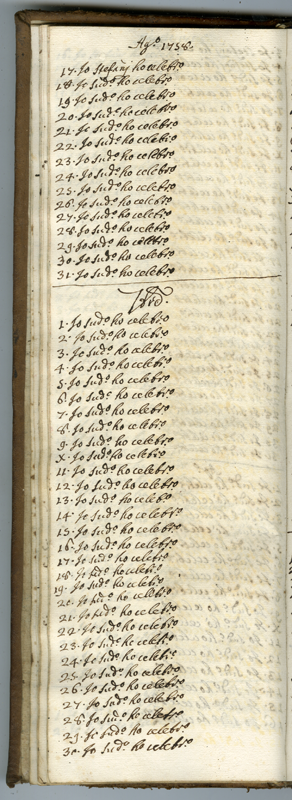 Ag.º 1758.
17. Io Stefanj ho celebr.º
18. Io sud.º ho celebr.º
19. Io sud.º ho celebr.º
20. Io sud.º ho celebr.º
21. Io sud.º ho celebr.º
22. Io sud.º ho celebr.º
23. Io sud.º ho celebr.º
24. Io sud.º ho celebr.º
25. Io sud.º ho celebr.º
26. Io sud.º ho celebr.º
27. Io sud.º ho celebr.º
28. Io sud.º ho celebr.º
29. Io sud.º ho celebr.º
30. Io sud.º ho celebr.º
31. Io sud.º ho celebr.º
7bre.
1. Io sud.º ho celebr.º
2. Io sud.º ho celebr.º
3. Io sud.º ho celebr.º
4. Io sud.º ho celebr.º
5. Io sud.º ho celebr.º
6. Io sud.º ho celebr.º
7. Io sud.º ho celebr.º
8. Io sud.º ho celebr.º
9. Io sud.º ho celebr.º
X. Io sud.º ho celebr.º
11. Io sud.º ho celebr.º
12. Io sud.º ho celebr.º
13. Io sud.º ho celebr.º
14. Io sud.º ho celebr.º
15. Io sud.º ho celebr.º
16. Io sud.º ho celebr.º
17. Io sud.º ho celebr.º
18. Io sud.º ho celebr.º
19. Io sud.º ho celebr.º
20. Io sud.º ho celebr.º
21. Io sud.º ho celebr.º
22. Io sud.º ho celebr.º
23. Io sud.º ho celebr.º
24. Io sud.º ho celebr.º
25. Io sud.º ho celebr.º
26. Io sud.º ho celebr.º
27. Io sud.º ho celebr.º
28. Io sud.º ho celebr.º
29. Io sud.º ho celebr.º
30. Io sud.º ho celebr.º